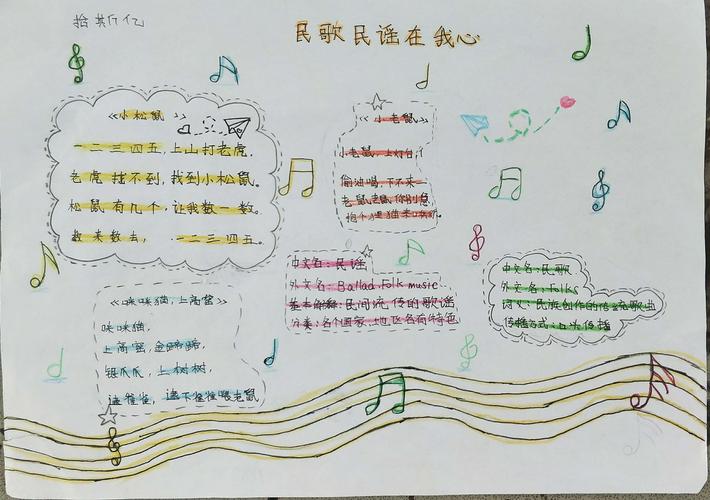 民歌民谣在我心
《小松鼠》
一二三四五，上山打老虎，
老虎找不到，找到小松鼠。
松鼠有几个，让我数一数。
数来数去，一二三四五。
《小老鼠》
小老鼠，上灯台，
偷油喝，下不来
老鼠老鼠你别急，
抱个猫来
中文名：民谣
外文名：Ballad Folk music
基本解释：民间流传的歌谣
分类：各个国家、地区各有特色
中文名：民歌
外文名：Folks
词义：民族创作的传统歌曲
传播方式：口头传播
《咪咪猫，上高窑》
咪咪猫，
上高窑，金蹄蹄，
银爪爪，上树树，
逮雀雀，逮下雀雀喂老鼠